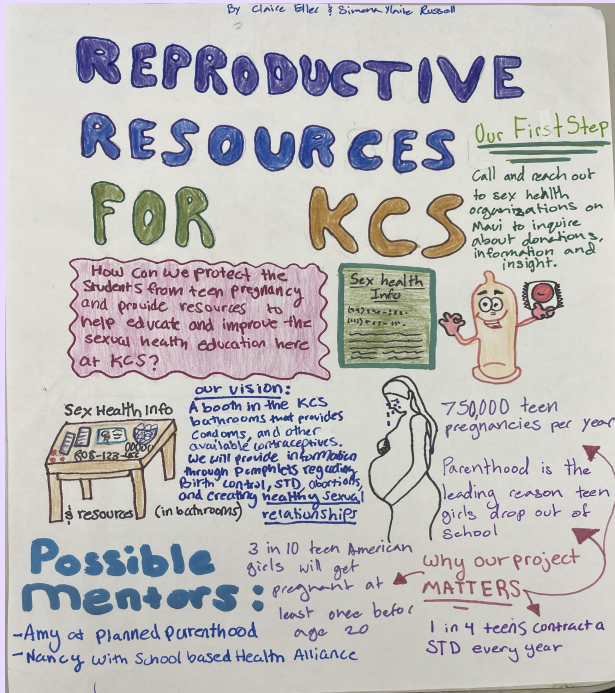 By Claire Eller & Simona Ylaite Russell
REPRODUCTIVE
RESOURCES
FOR KCS
Our First Step
Call and reach out
to sex health
organizations on
Maui to inquire
about donations,
information and
insight.
How can we protect the
Students from teen pregnancy
and provide resources to
help educate and improve the
sexual health education here
at KCS?
Sex health
Info
our vision:
A booth in the KCS
bathrooms that provides
condoms, and other
available contraceptives.
We will provide information
through Pamphlets regarding
Birth control, STD, abortions,
and creating healthy sexual
relationships
Sex Health Info
& resources
(in bathrooms)
750,000 teen
pregnancies per year
Parenthood is the
leading reason teen
girls drop out of
school
why our project
MATTERS
3 in 10 teen American
girls will get
pregnant at
least once befor
age 20
1 in 4 teens contract a
STD every year
Possible
mentors:
-Amy at planned parenthood
-Nancy with School based Health Alliance